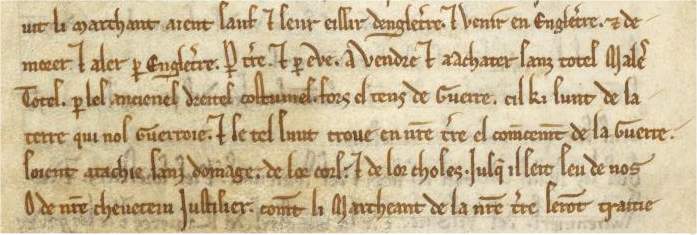 uit li marchant aient sauf ⁊ seur eissir dengleťre. ⁊ venir en Engleťre. ⁊ de
morer ⁊ aler ꝑ Engleťre. ꝑ ťre. ⁊ ꝑ eve. A vendre ⁊ a achater sanz totes Males
Totes. ꝑ les ancienes dreites costumes. fors el tens de Guerre. cil ki sunt de la
terre qui nos Guerroie. ⁊ se tel sunt trove en nr̄e ťre el com̄cem̄t de la Guerre.
soient atachie sanz domage. de lor cors. ⁊ de lor choses. Jusq' il seit seu de nos
O de nr̄e chevetein Justisier. com̄t li Marcheant de la nr̄e ťre seront traitie